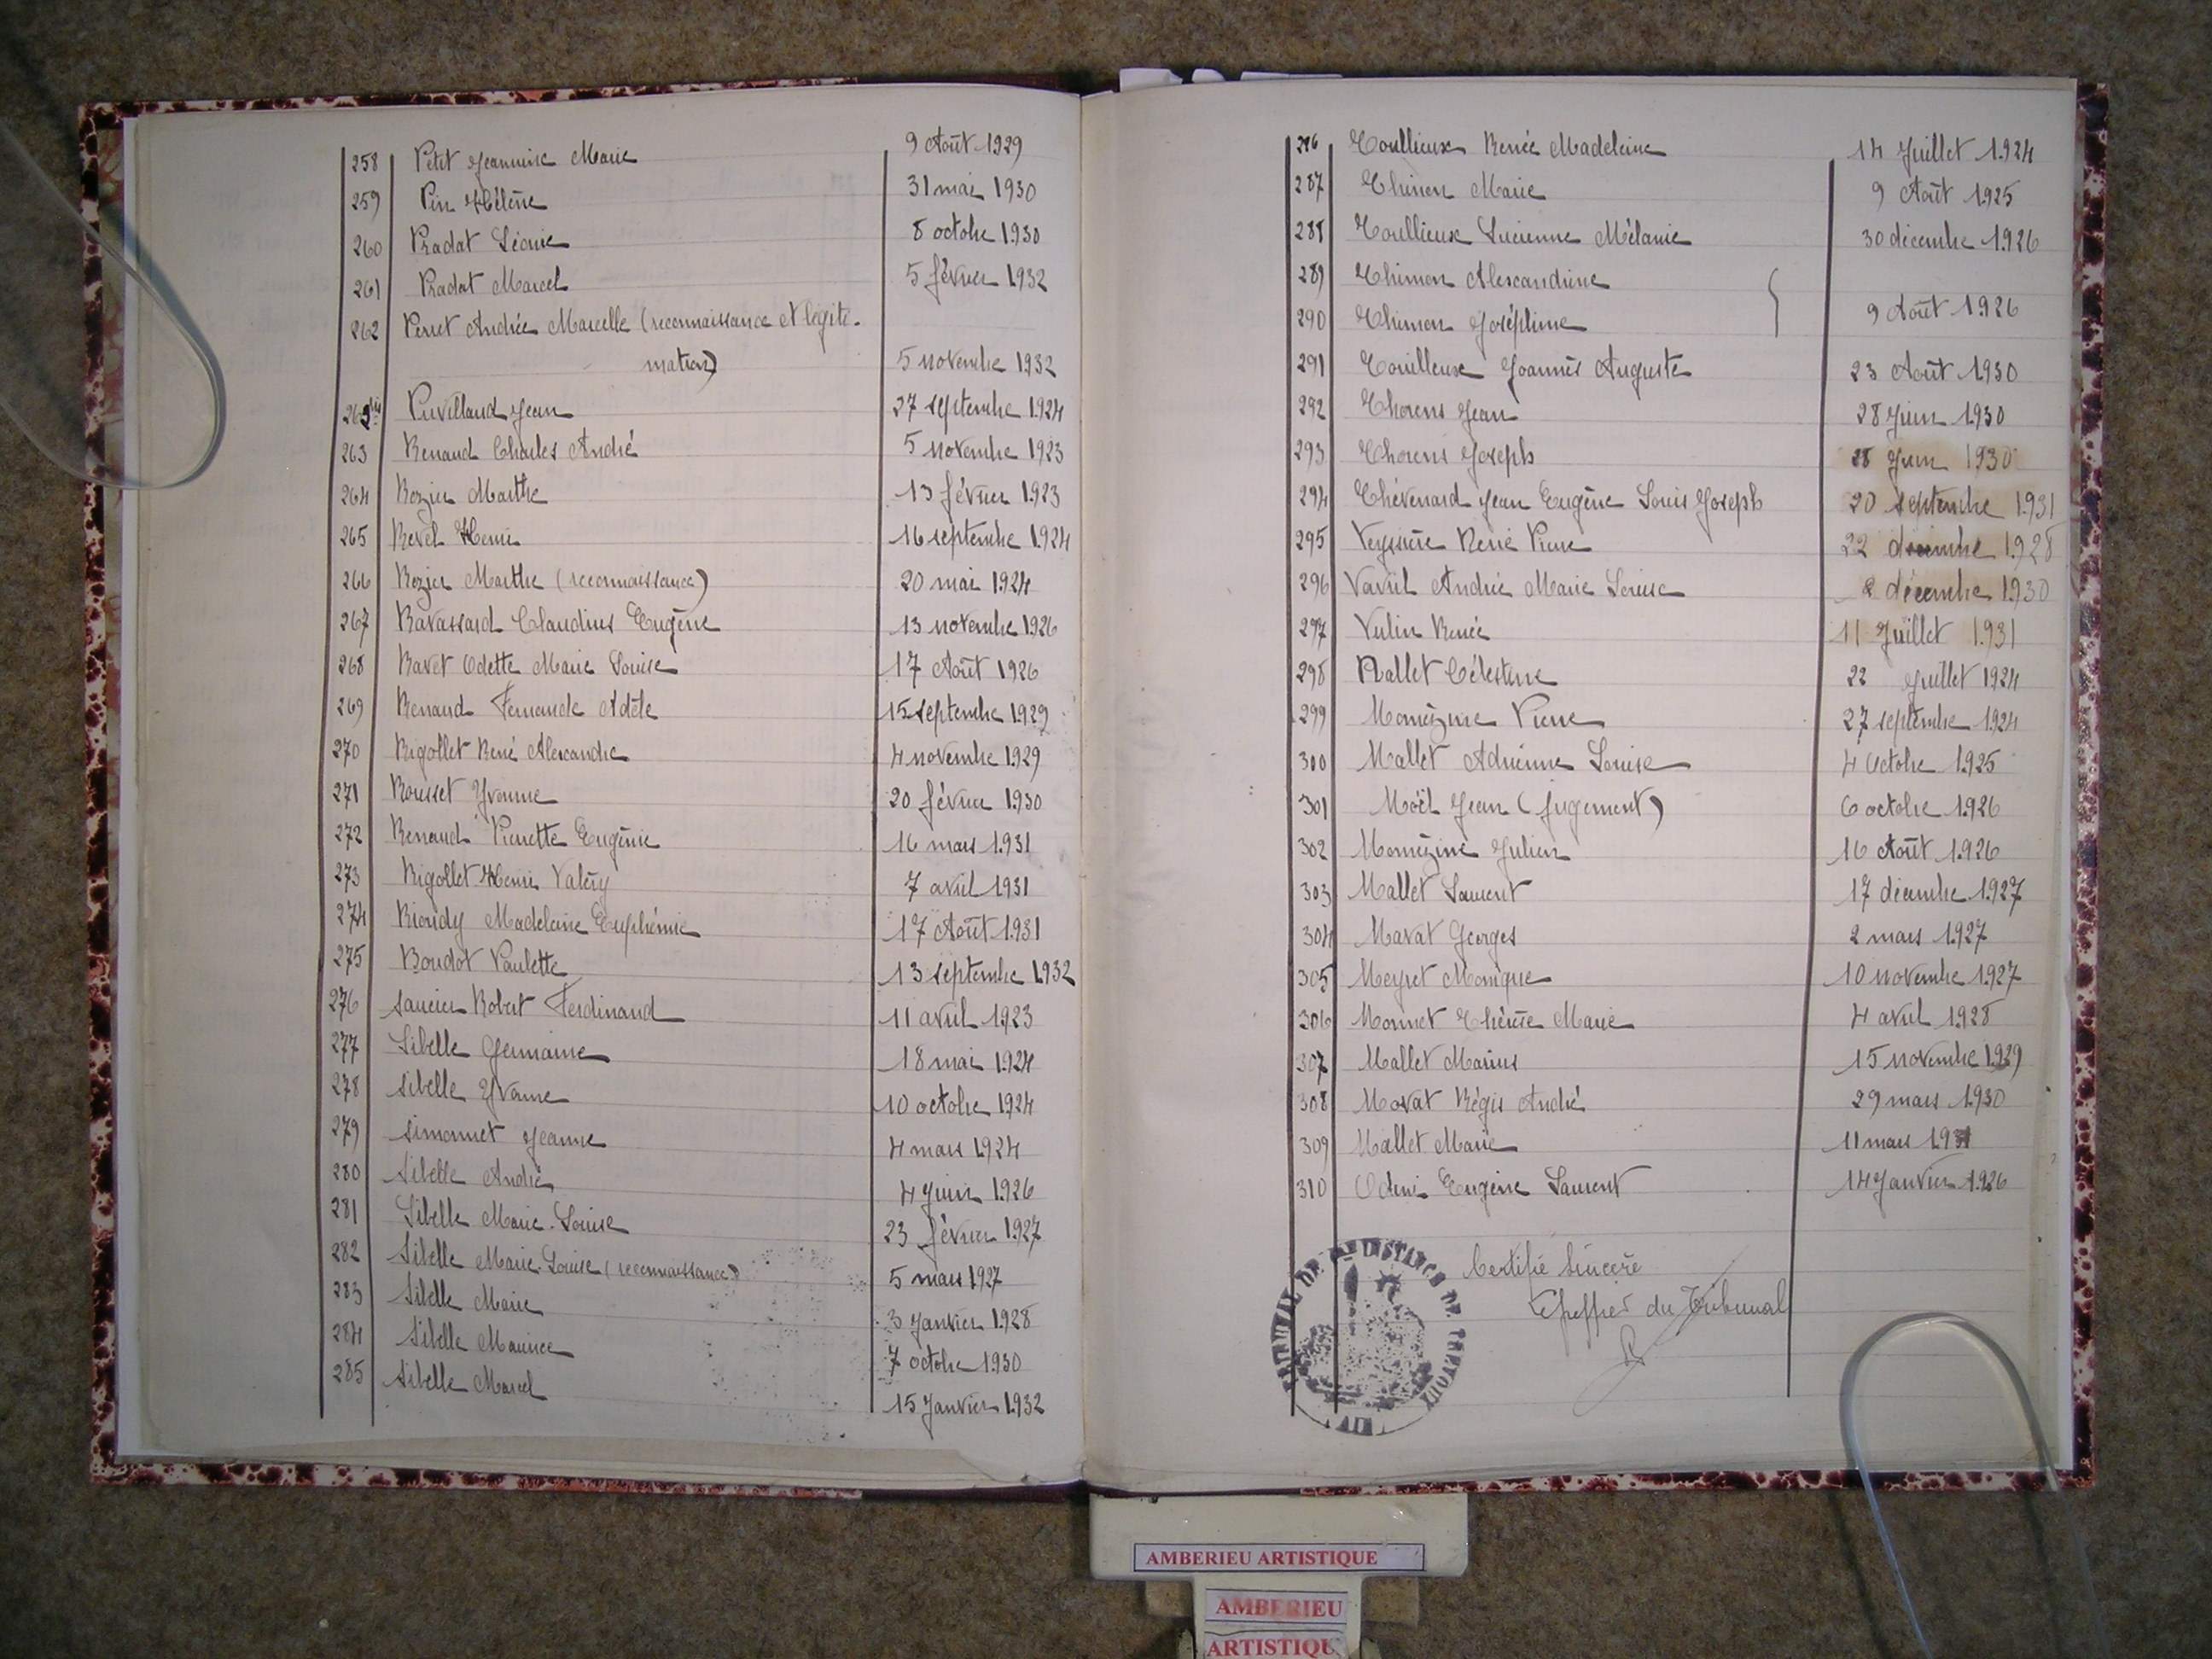 258 Petit Jeannine Marie 9 Août 1929
259 Pin Hélène 31 mai 1930
260 Pradat Léonie 8 octobre 1930
261 Pradat Marcel 5 février 1932
262 Perret Andrée Marcelle (reconnaissance et légiti-
mation) 5 novembre 1932
262bis Puvilland Jean 27 septembre 1924
263 Renaud Charles André 5 novembre 1923
264 Rozier Marthe 13 février 1923
265 Revel Henri 16 septembre 1924
266 Rozier Marthe (reconnaissance) 20 mai 1924
267 Ravassard Claudius Eugène 13 novembre 1926
268 Ravet Odette Marie Louise 17 Août 1926
269 Renaud Fernande Adèle 15 septembre 1929
270 Rigollet René Alexandre 4 novembre 1929
271 Rousset Yvonne 20 février 1930
272 Renaud Pierrette Eugénie 16 mars 1931
273 Rigollet Henri Valéry 7 avril 1931
274 Rioudy Madeleine Euphémie 17 Août 1931
275 Boudot Paulette 13 septembre 1932
276 Saucier Robert Ferdinand 11 avril 1923
277 Sibelle Germaine 18 mai 1924
278 Sibelle Yvonne 10 octobre 1924
279 Simonnet Jeanne 4 mars 1924
280 Sibelle André 4 Juin 1926
281 Sibelle Marie-Louise 23 février 1927
282 Sibelle Marie-Louise (reconnaissance) 5 mars 1927
283 Sibelle Marie 3 Janvier 1928
284 Sibelle Maurice 7 octobre 1930
285 Sibelle Marcel 15 Janvier 1932
286 Toullieux Renée Madeleine 14 Juillet 1924
287 Thinon Marie 9 Août 1925
288 Toullieux Lucienne Mélanie 30 décembre 1926
289 Thimon Alexandrine
290 Thimon Joséphine 9 Août 1926
291 Touilleux Joannès Auguste 23 Août 1930
292 Thorens Jean 28 Juin 1930
293 Thorens Joseph 28 Juin 1930
294 Thévenard Jean Eugène Louis Joseph 20 septembre 1931
295 Veyssière René Pierre 22 décembre 1928
296 Vavril Andrée Marie Louise 2 décembre 1930
297 Vulin Renée 11 Juillet 1931
298 Mallet Célestine 22 Juillet 1924
299 Momézine Pierre 27 septembre 1924
300 Mallet Adrienne Louise 4 Octobre 1925
301 Moël Jean (jugement) 6 octobre 1926
302 Momézine Julien 16 Août 1926
303 Mallet Laurent 17 décembre 1927
304 Mavat Georges 2 mars 1927
305 Meyret Monique 10 novembre 1927
306 Monnet Thérèse Marie 4 avril 1928
307 Mallet Marius 15 novembre 1929
308 Movat Régis André 29 mars 1930
309 Mallet Marie 11 mars 1931
310 Odini Eugène Laurent 14 Janvier 1926
Certifié sincère
Le greffier du Tribunal
AMBERIEU ARTISTIQUE
AMBERIEU
ARTISTIQU